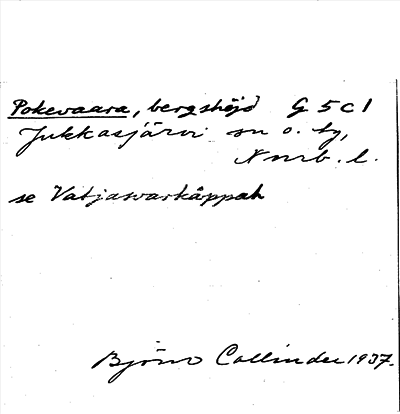 Pokevaara, bergshöjd G 5 c 1
Jukkasjärvi sn o. tg,
Nnrb. l.
se Vatjasvarkåppah
Björn Collinder 1937.